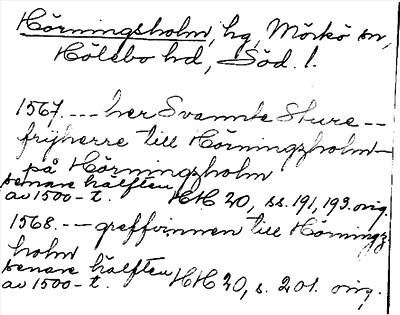 Hörningsholm, hg, Mörkö sn,
Hölebo hd, Söd. l.
1567. --- her Svannte Sture --
frijherre till Hörningzholm --
på Hörningzholm
senare hälften
av 1500-t. HH 20, ss. 191, 193. orig.
1568. -- greffvinnen till Hörningz
holm
senare hälften
av 1500-t. HH 20, s. 201. orig.